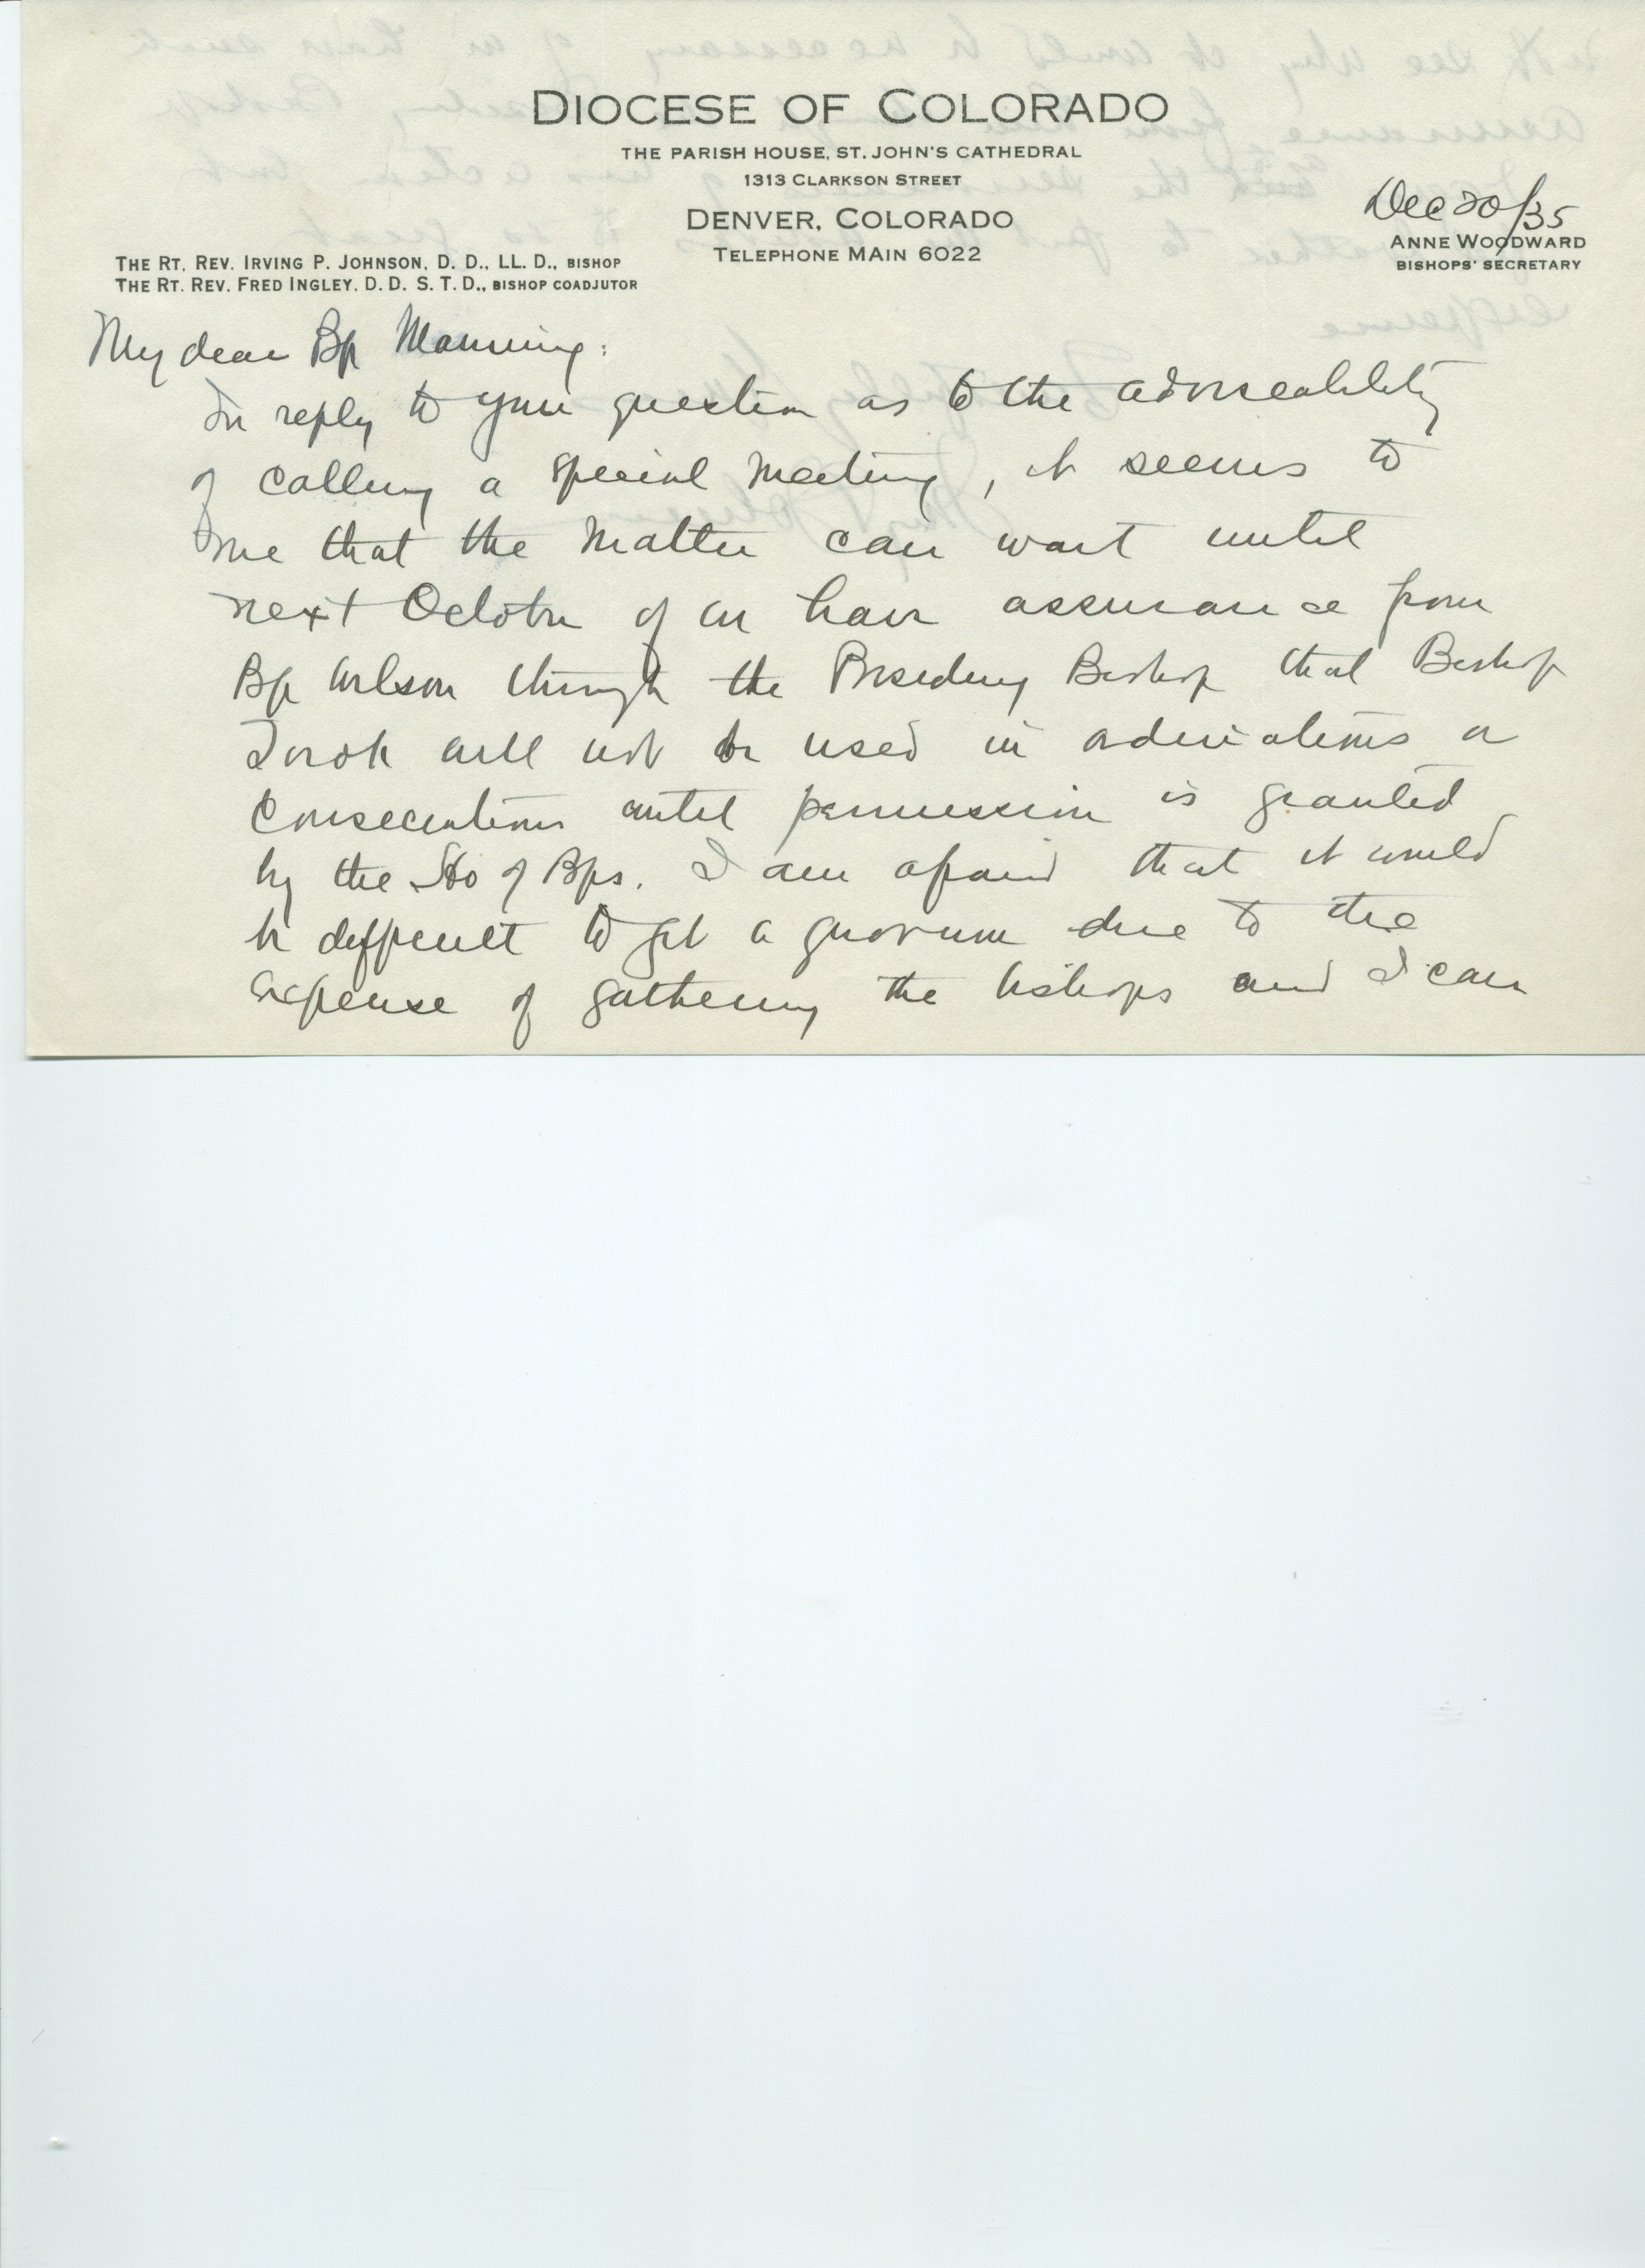 DIOCESE OF COLORADO
THE PARISH HOUSE, ST. JOHN'S CATHEDRAL
1313 CLARKSON STREET
DENVER, COLORADO
TELEPHONE MAIN 6022
Dec 20/35
ANNE WOODWARD
BISHOPS' SECRETARY
THE RT. REV. IRVING P. JOHNSON, D. D., LL. D., BISHOP
THE RT. REV. FRED INGLEY, D. D. S. T. D., BISHOP COADJUTOR
My dear Bp Manning:
In reply to your question as to the adviseability
of calling a special meeting, it seems to
me that the matter can wait until
next October if we have assurance from
Bp Wilson through the Presiding Bishop that Bishop
Torok will not be used in ordinations or
Consecrations until permission is granted
by the Ho of Bps. I am afraid that it would
be difficult to get a quorum due to the
expense of gathering the bishops and I can